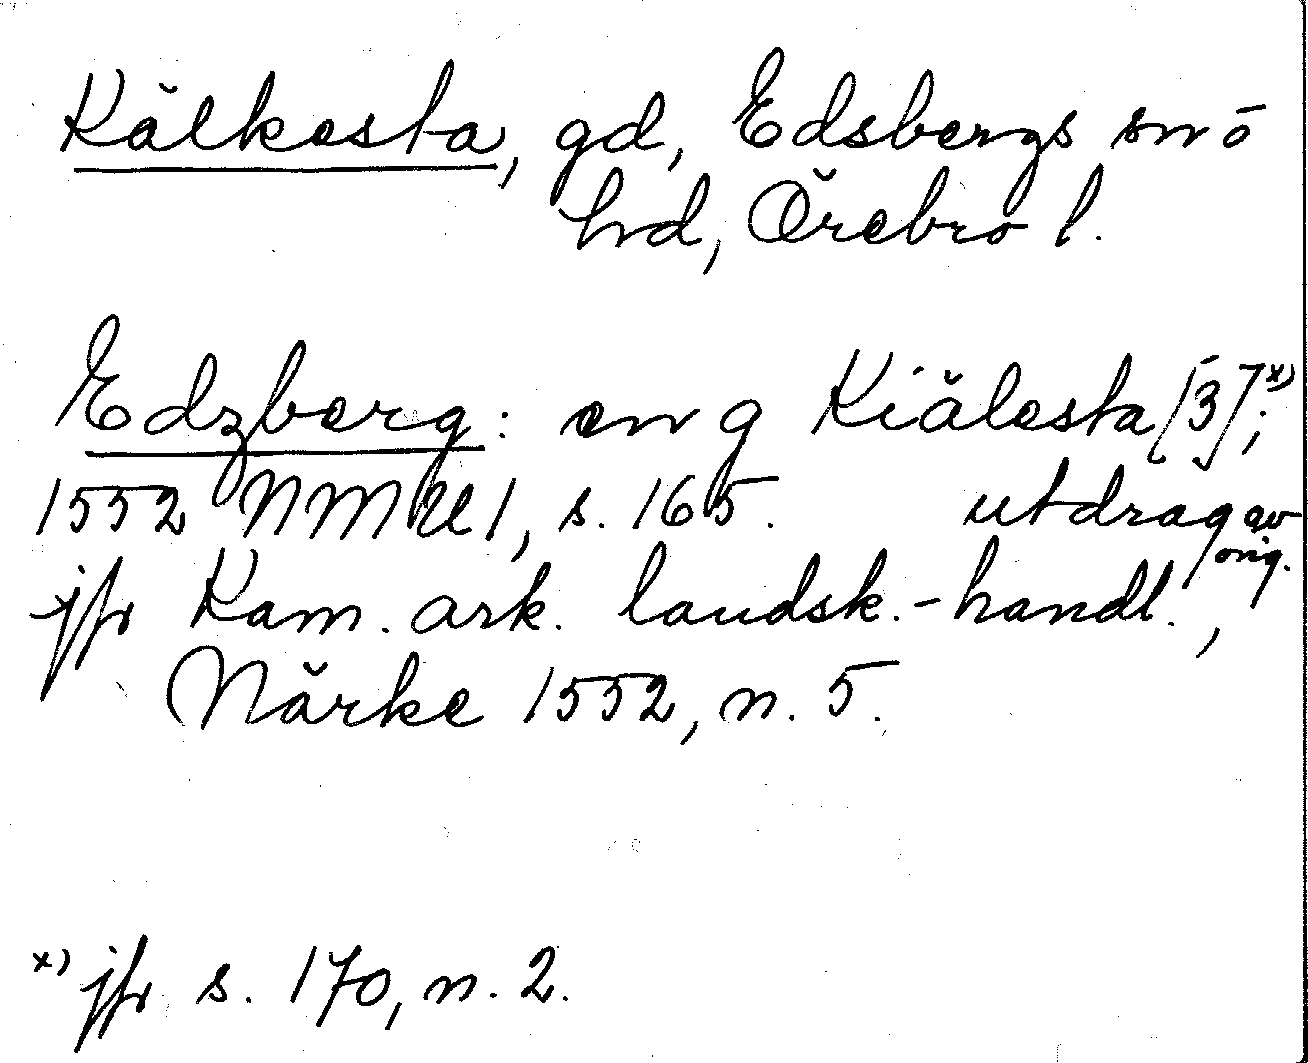 Kälkesta, gd, Edsbergs sn ō
hd, Örebro l.
Edzberg: en g Kiälesta [3]x);
1552 NMU 1, s. 165. utdrag av
orig.
jfr Kam. ark. landsk.-handl.,
Närke 1552, n. 5.
x) jfr s. 170, n. 2.